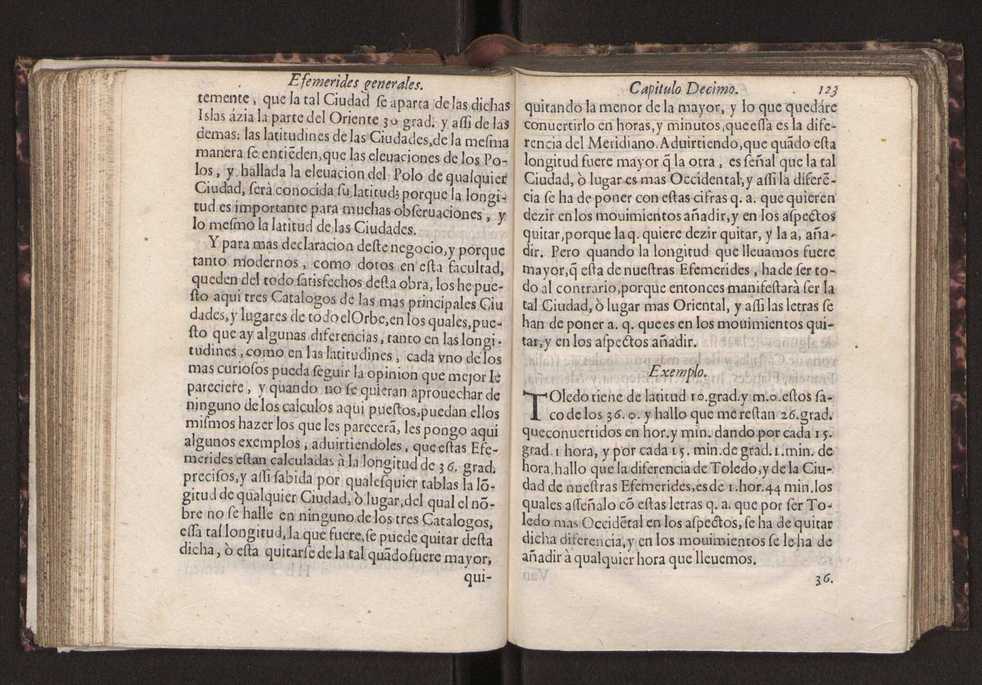 Efemerides generales.
temente, que la tal Ciudad se aparta de las dichas
Islas ázia la parte del Oriente 30 grad. y assi de las
demas: las latitudines de las Ciudades, de la mesma
manera se entiẽden, que las eleuaciones de los Po-
los, y hallada la eleuacion del Polo de qualquier
Ciudad, serà conocida su latitud: porque la longi-
tud es importante para muchas obseruaciones, y
lo mesmo la latitud de las Ciudades.
Y para mas declaracion deste negocio, y porque
tanto modernos, como dotos en esta facultad,
queden del todo satisfechos desta obra, los he pue-
sto aqui tres Catalogos de las mas principales Ciu
dades, y lugares de todo el Orbe, en los quales, pue-
sto que ay algunas diferencias, tanto en las longi-
tudines, como en las latitudines, cada vno de los
mas curiosos pueda seguir la opinion que mejor le
pareciere, y quando no se quieran aprouechar de
ninguno de los calculos aqui puestos, puedan ellos
mismos hazer los que les parecerà, les pongo aqui
algunos exemplos, aduirtiendoles, que estas Efe-
merides estan calculadas à la longitud de 36. grad.
precisos, y assi sabida por qualesquier tablas la lõ-
gitud de qualquier Ciudad, ò lugar, del qual el nõ-
bre no se halle en ninguno de los tres Catalogos,
essa tal longitud, la que fuere, se puede quitar desta
dicha, ò esta quitarse de la tal quãdo fuere mayor,
qui-
Capitulo Decimo. 123
quitando la menor de la mayor, y lo que quedáre
conuertirlo en horas, y minutos, que essa es la dife-
rencia del Meridiano. Aduirtiendo, que quãdo esta
longitud fuere mayor q̃ la otra, es señal que la tal
Ciudad, ò lugar es mas Occidental, y assi la diferẽ-
cia se ha de poner con estas cifras q. a. que quieren
dezir en los mouimientos añadir, y en los aspectos
quitar, porque la q. quiere dezir quitar, y la a, aña-
dir. Pero quando la longitud que lleuamos fuere
mayor, q̃ esta de nuestras Efemerides, ha de ser to-
do al contrario, porque entonces manifestarà ser la
tal Ciudad, ò lugar mas Oriental, y assi las letras se
han de poner a. q. que es en los mouimientos qui-
tar, y en los aspectos añadir.
Exemplo.
TOledo tiene de latitud 10. grad. y m. 0. estos sa-
co de los 36. 0. y hallo que me restan 26. grad.
que conuertidos en hor. y min. dando por cada 15.
grad. 1 hora, y por cada 15. min. de grad. 1. min. de
hora, hallo que la diferencia de Toledo, y de la Ciu-
dad de nuestras Efemerides, es de 1. hor. 44 min. los
quales asseñalo cõ estas letras q. a. que por ser To-
ledo mas Occidẽtal en los aspectos, se ha de quitar
dicha diferencia, y en los mouimientos se le ha de
añadir à qualquier hora que lleuemos.
36.